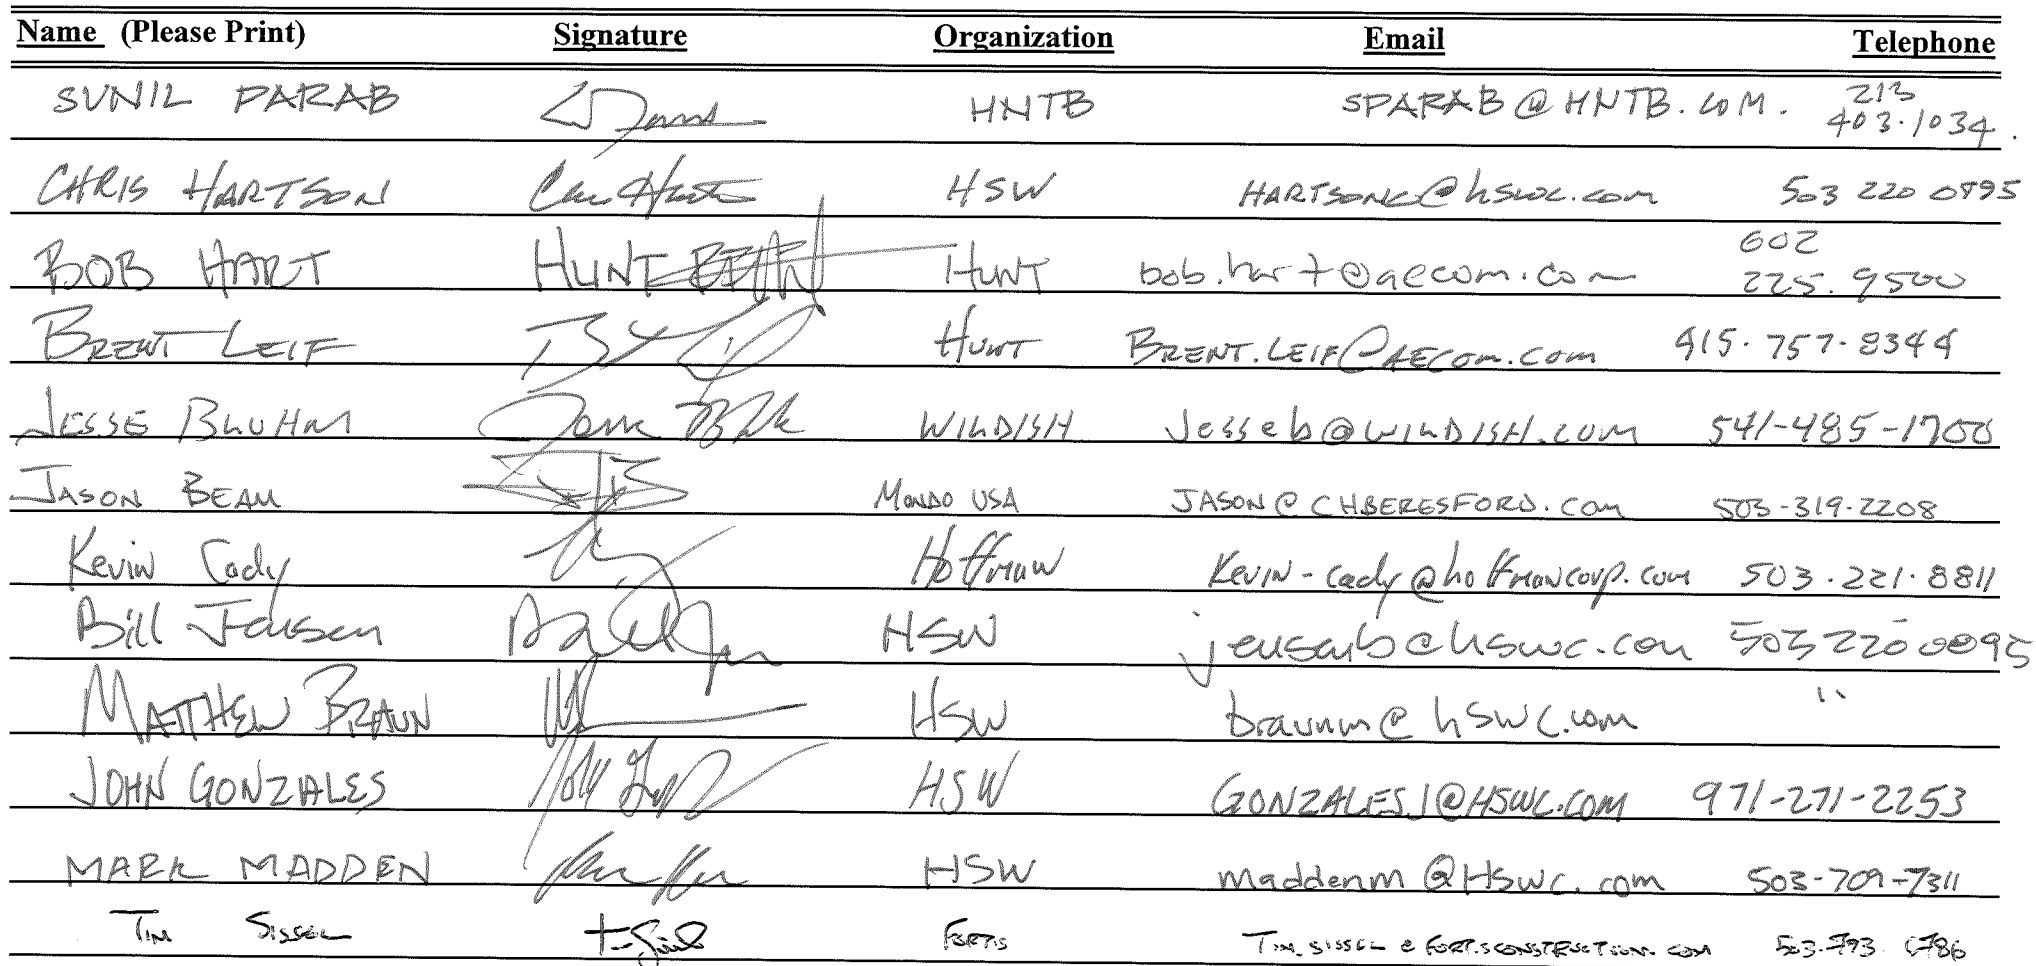 Name (Please Print) Signature Organization Email Telephone
SUNIL PARAB HNTB SPARAB@HNTB.COM. 213 403.1034.
CHRIS HARTSON HSW HARTSONC@hswc.com 503 220 0895
BOB HART HUNT HUNT bob.hart@aecom.com 602 225.9500
BRENT LEIF HUNT BRENT.LEIF@AECOM.COM 415.757.8344
JESSE BLUHM WILDISH Jesseb@WILDISH.COM 541-485-1700
JASON BEAM MONDO USA JASON@CHBERESFORD.COM 503-319-2208
Kevin Cady Hoffman Kevin-cady@hoffmancorp.com 503.221.8811
Bill Jensen HSW jensenb@hswc.com 503 220 0895
MATTHEW BRAUN HSW braunm@hswc.com "
JOHN GONZALES HSW GONZALESJ@HSWC.COM 971-271-2253
MARK MADDEN HSW maddenm@Hswc.com 503-709-7311
TIM SISSEL FORTIS TIM.SISSEL@FORTISCONSTRUCTION.COM 503.793